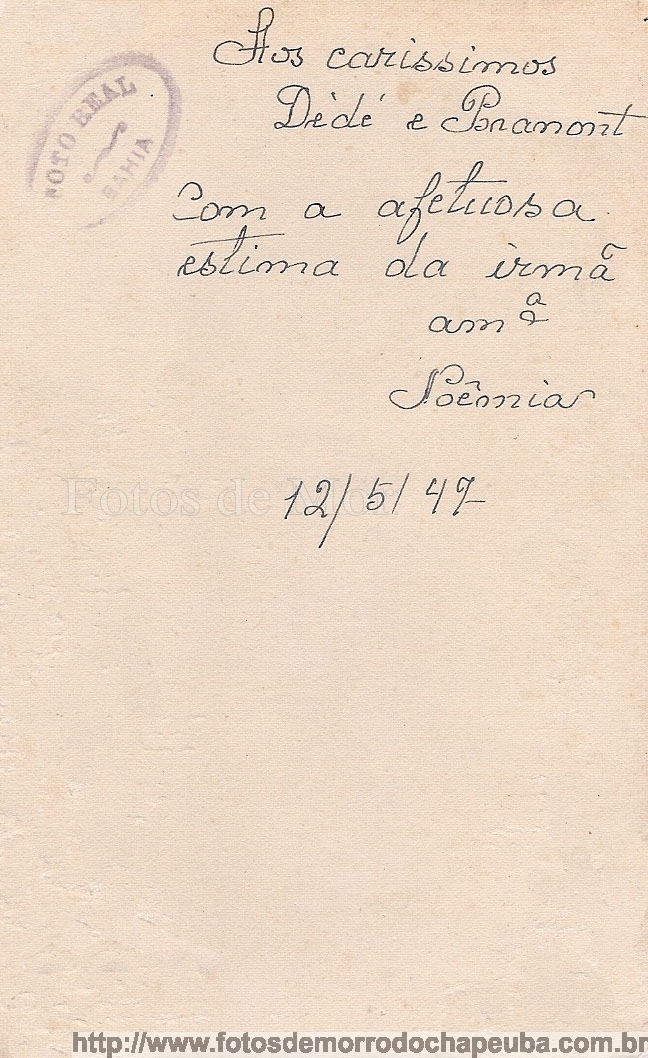 Aos carissimos
Dèdé e Bramont
Com a afetuosa
estima da irmã
amª
Noêmia
12/5/47
FOTO REAL
BAHIA
Fotos de Mo
http://www.fotosdemorrodochapeuba.com.br